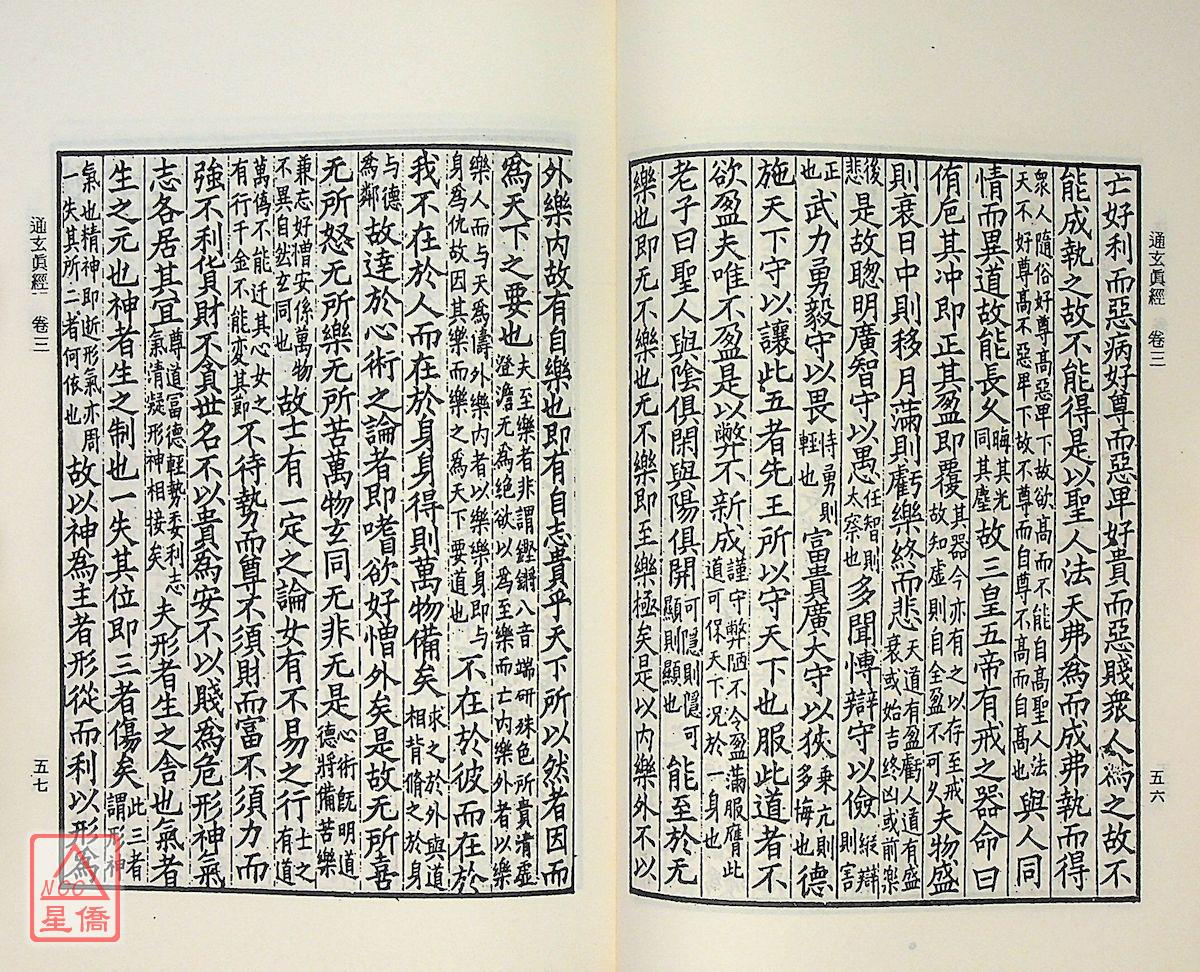 通玄真經 卷三
五六
亡好利而惡病好尊而惡卑好貴而惡賤衆人為之故不
能成執之故不能得是以聖人法天弗為而成弗執而得
衆人隨俗好尊高惡卑下故欲高而不能自高聖人法
天不好尊高不惡卑下故不尊而自尊不高而自高也與人同
情而異道故能長久晦其光同其塵故三皇五帝有戒之器命曰
侑卮其冲即正其盈即覆其器今亦有之以存至戒故知虛則自全盈不可久夫物盛
則衰日中則移月滿則虧樂終而悲天道有盈虧人道有盛衰或始吉終凶或前樂
後悲是故聦明廣智守以愚任智則太察也多聞博辯守以儉縱辯則害
正也武力勇毅守以畏恃勇則輕也富貴廣大守以狹乘亢則多悔也德
施天下守以讓此五者先王所以守天下也服此道者不
欲盈夫唯不盈是以弊不新成謹守弊陋不令盈滿服膺此道可保天下况於一身也
老子曰聖人與陰俱閑與陽俱開可隱則隱可顯則顯也能至於无
樂也即无不樂也无不樂即至樂極矣是以内樂外不以
外樂内故有自樂也即有自志貴乎天下所以然者因而
為天下之要也夫至樂者非謂鏗鏘八音端研殊色所貴清虛澄澹无為絶欲以為至樂而亡内樂外者以樂
樂人而与天為儔外樂内者以樂樂身即与
身為仇故因其樂而樂之為天下要道也不在於彼而在於
我不在於人而在於身身得則萬物備矣求之於外與道相背脩之於身
与德為鄰故達於心術之論者即嗜欲好憎外矣是故无所喜
无所怒无所樂无所苦萬物玄同无非无是心術既明道德將備苦樂
兼忘好憎安係萬物不異自然玄同也故士有一定之論女有不易之行士之有道
萬僞不能迁其心女之有行千金不能変其節不待勢而尊不須財而富不須力而
強不利貨財不貪世名不以貴為安不以賤為危形神氣
志各居其宜尊道冨德輕勢委利志氣清凝形神相接矣夫形者生之舍也氣者
生之元也神者生之制也一失其位即三者傷矣此三者謂形神
氣也精神即逝形氣亦周一失其所二者何依也故以神為主者形從而利以形為
通玄真經 卷三
五七
NCC
星僑